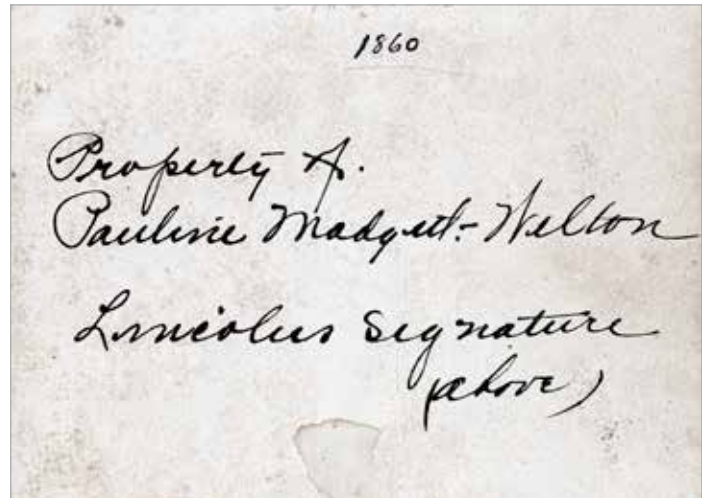 1860
Property of.
Pauline Madgett-Welton
Lincolns Signature
(above)